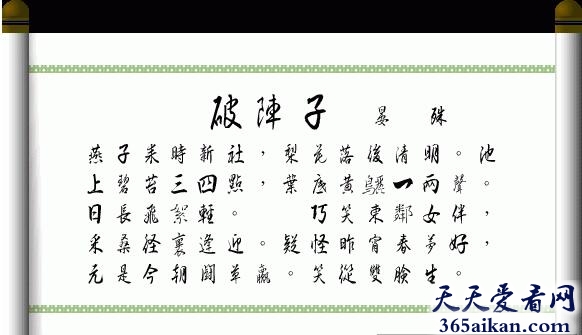 破陣子 晏 殊
燕子来時新社，梨花落後清明。池
上碧苔三四點，葉底黃鸝一兩聲。
日長飛絮輕。 巧笑東鄰女伴，
采桑径裏逢迎。疑怪昨宵春夢好，
元是今朝鬪草贏。笑從雙臉生。
天天爱看网
365aikan.com